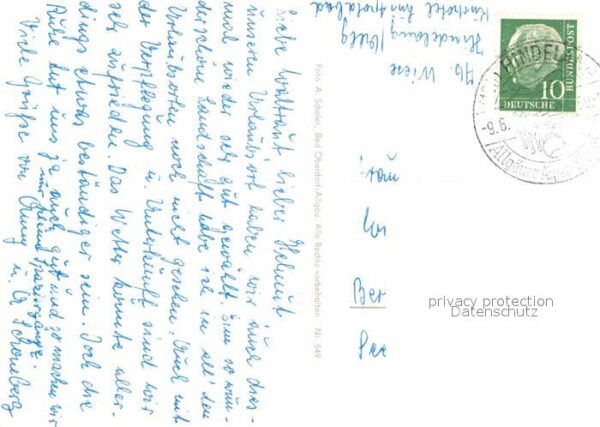 Liebe Waltraut, lieber Helmut!
Unseren Urlaubsort haben wir auch dies-
mal wieder sehr gut gewählt. Eine so wun-
derschöne Landschaft habe ich in all' den
Urlaubsorten noch nicht gesehen. Auch mit
der Verpflegung u. Unterkunft sind wir
sehr zufrieden. Das Wetter könnte aller-
dings etwas beständiger sein. Doch die
Ruhe tut uns ja auch gut und so machen wir
nur kleine Spaziergänge.
Viele Grüße von
u. A. Schomberg
Foto A. Schaler, Bad Oberdorf-Allgäu. Alle Rechte vorbehalten Nr. 549
Ab. Wiese
Hindelang/Allg
Kurhotel
HINDELANG
-9.6.
Allgäuer
10
DEUTSCHE
BUNDESPOST
Ber
privacy protection
Datenschutz